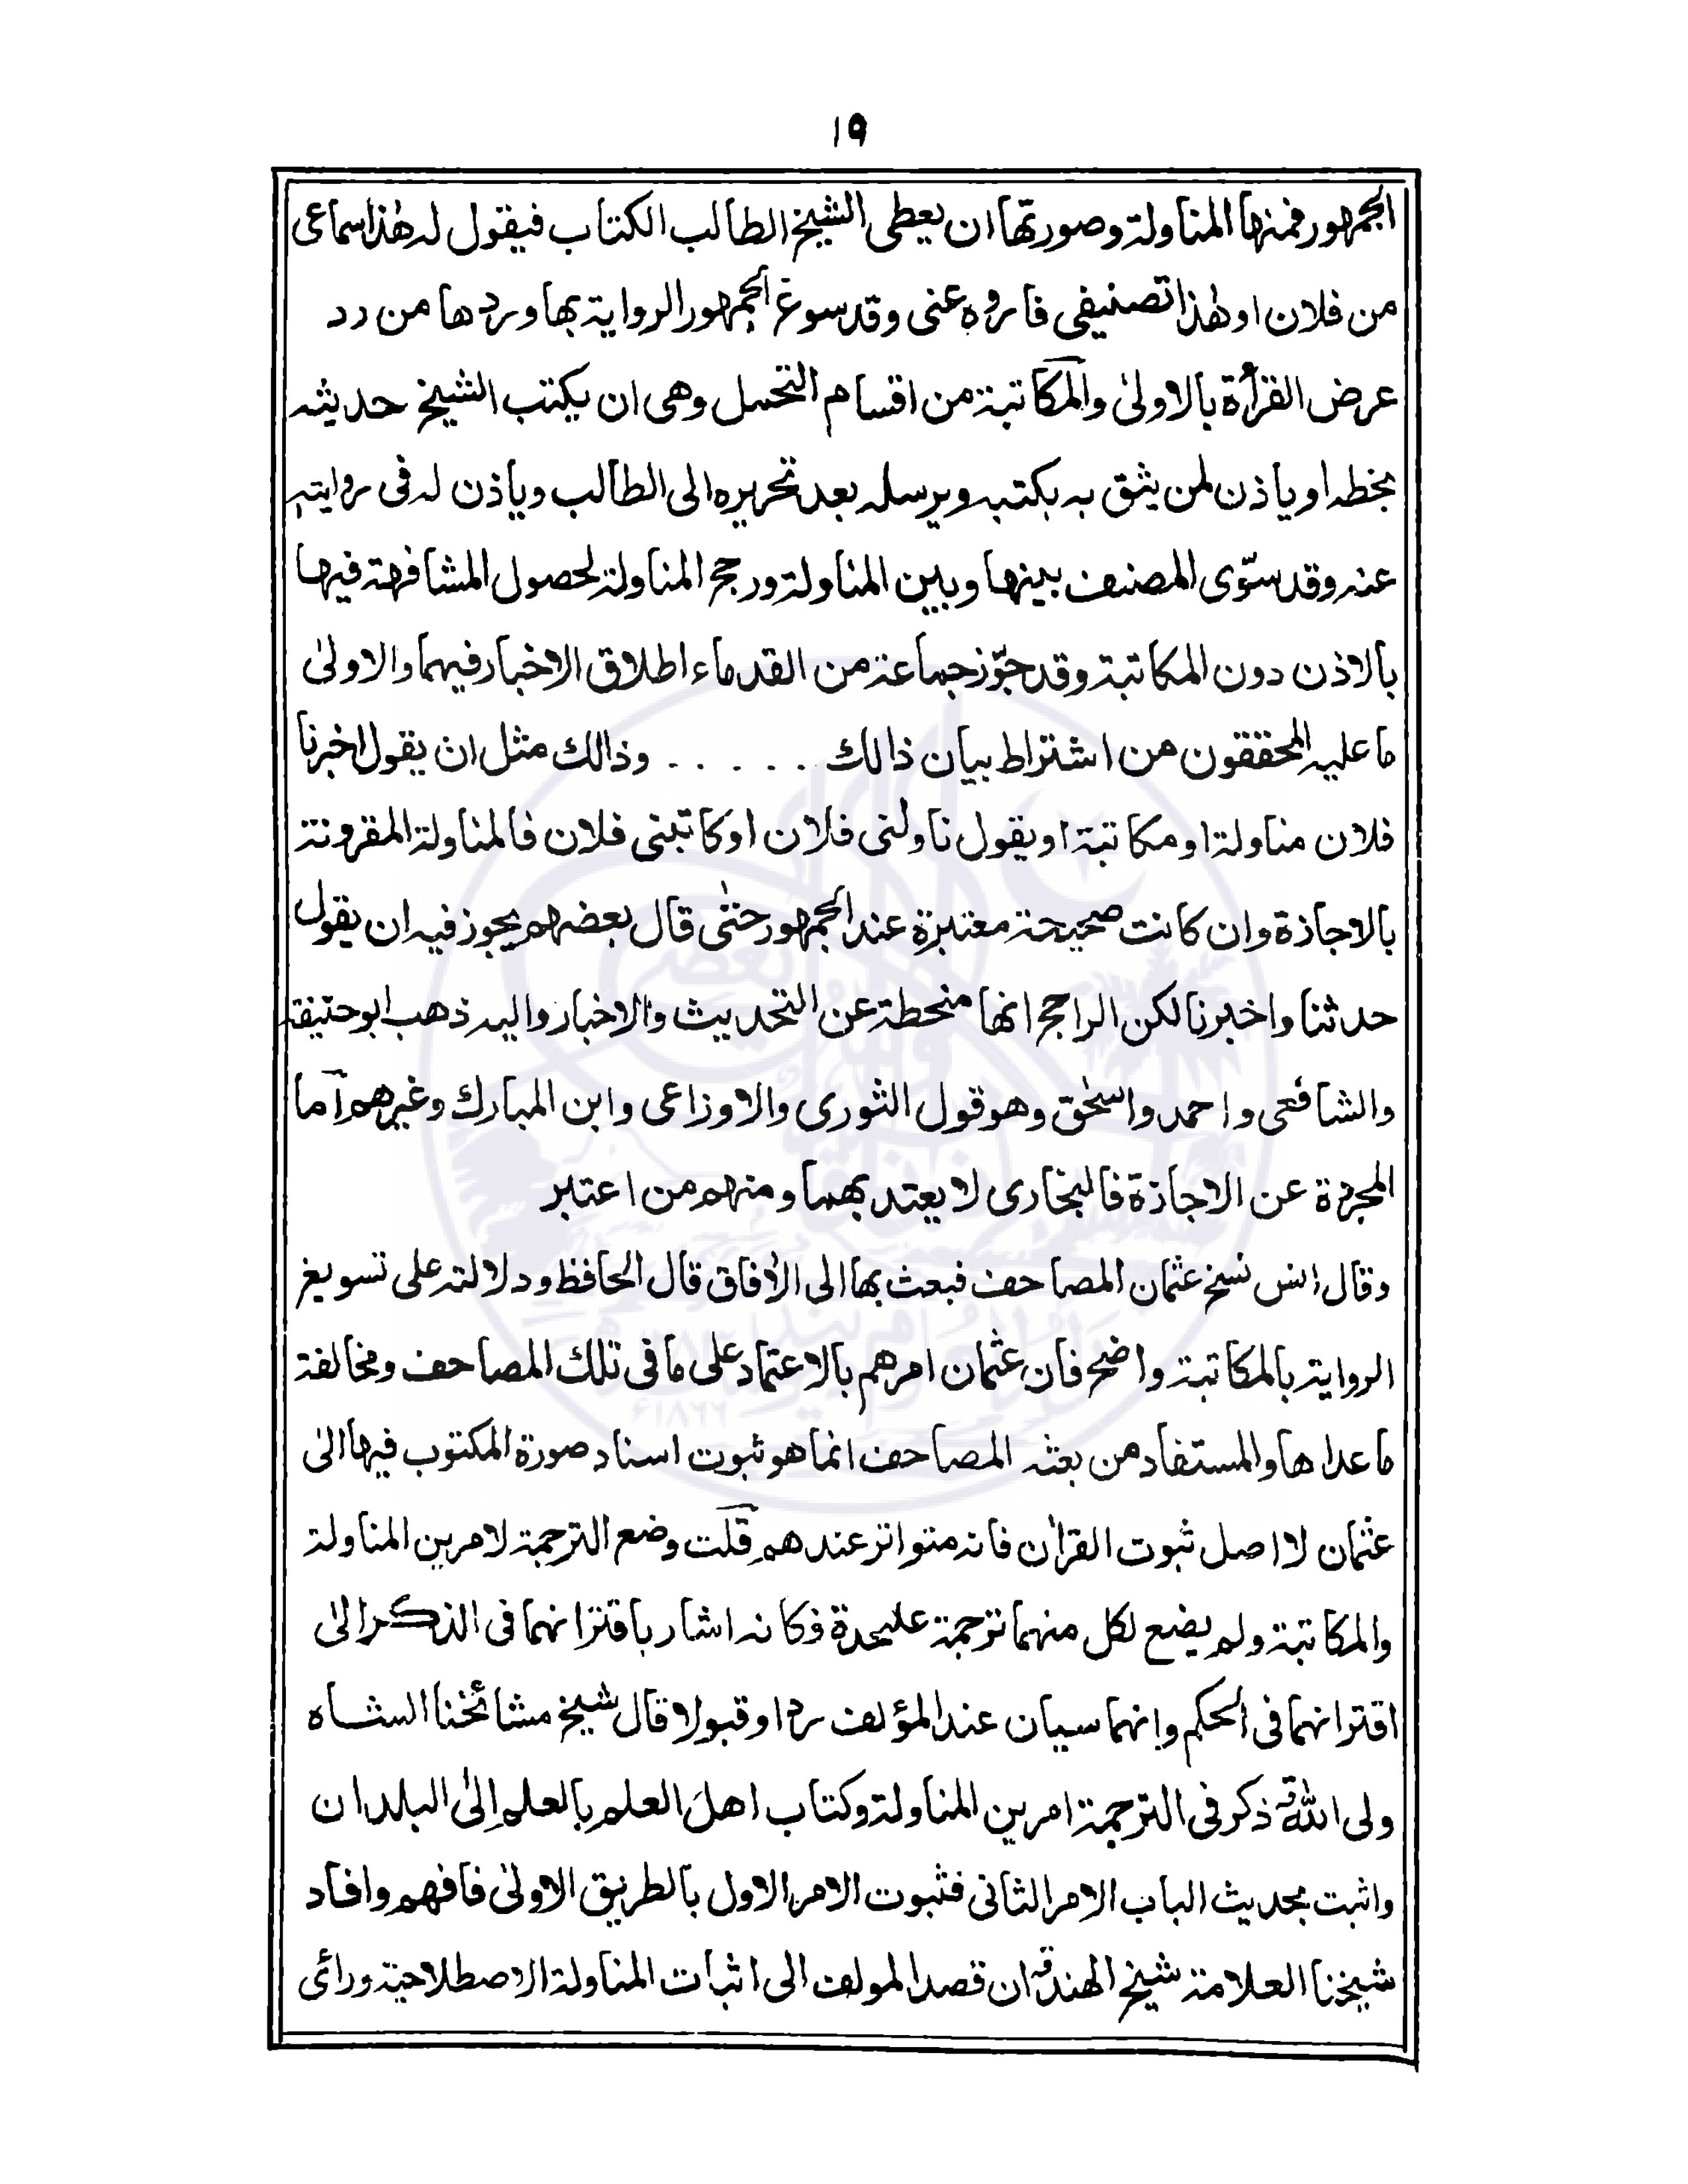 ١٩
الجمهور فمنها المناولة وصورتها ان يعطى الشيخ الطالب الكتاب فيقول له هٰذا سماعى
من فلان او هٰذا تصنيفى فاروه عنى وقد سوغ الجمهور الرواية بها وردها من رد
عرض القرأة بالاولىٰ والمكاتبة من اقسام التحمل وهى ان يكتب الشيخ حديثه
بخطه او ياذن لمن يثق به بكتبه ويرسله بعد تحريره الى الطالب وياذن له فى روايته
عنه وقد سوّى المصنف بينها وبين المناولة ورجح المناولة لحصول المشافهة فيها
بالاذن دون المكاتبة وقد جوّز جماعة من القدماء اطلاق الاخبار فيهما والاولىٰ
ما عليه المحققون من اشتراط بيان ذالك ...... وذالك مثل ان يقول اخبرنا
فلان مناولة او مكاتبة او يقول ناولنى فلان او كاتبنى فلان فالمناولة المقرونة
بالاجازة وان كانت صحيحة معتبرة عند الجمهور حتىٰ قال بعضهم يجوز فيه ان يقول
حدثنا واخبرنا لكن الراجح انها منحطة عن التحديث والاخبار واليه ذهب ابوحنيفة
والشافعى واحمد واسحٰق وهو قول الثورى والاوزاعى وابن المبارك وغيرهم اما
المجردة عن الاجازة فالبخارى لا يعتد بهما ومنهم من اعتبر
وقال انس نسخ عثمان المصاحف فبعث بها الى الأفاق قال الحافظ ودلالته على تسويغ
الرواية بالمكاتبة واضح فان عثمان امرهم بالاعتماد على ما فى تلك المصاحف ومخالفة
ما عداها والمستفاد من بعثه المصاحف انما هو ثبوت اسناد صورة المكتوب فيها الىٰ
عثمان لا اصل ثبوت القراٰن فانه متواتر عندهم قلت وضع الترجمة لامرين المناولة
والمكاتبة ولم يضع لكل منهما ترجمة عليحدة فكانه اشار باقترانهما فى الذكر الىٰ
اقترانهما فى الحكم وانهما سيان عند المؤلف ردا وقبولا قال شيخ مشائخنا الشاه
ولى اللهؒ ذكر فى الترجمة امرين المناولة وكتاب اهل العلم بالعلم إلىٰ البلدان
واثبت بحديث الباب الامر الثانى فثبوت الامر الاول بالطريق الاولىٰ فافهم وافاد
شيخنا العلامة شيخ الهند ان قصد المولف الى اثبات المناولة الاصطلاحية ورائى